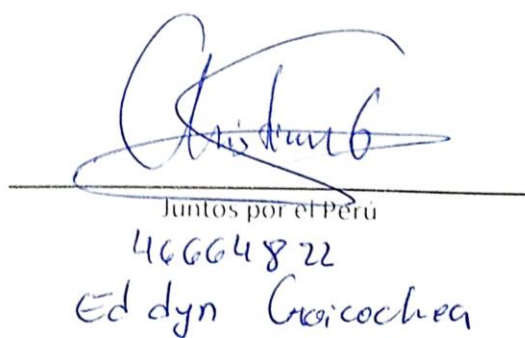 Cristian G
Juntos por el Perú
46664822
Eddyn Goicochea